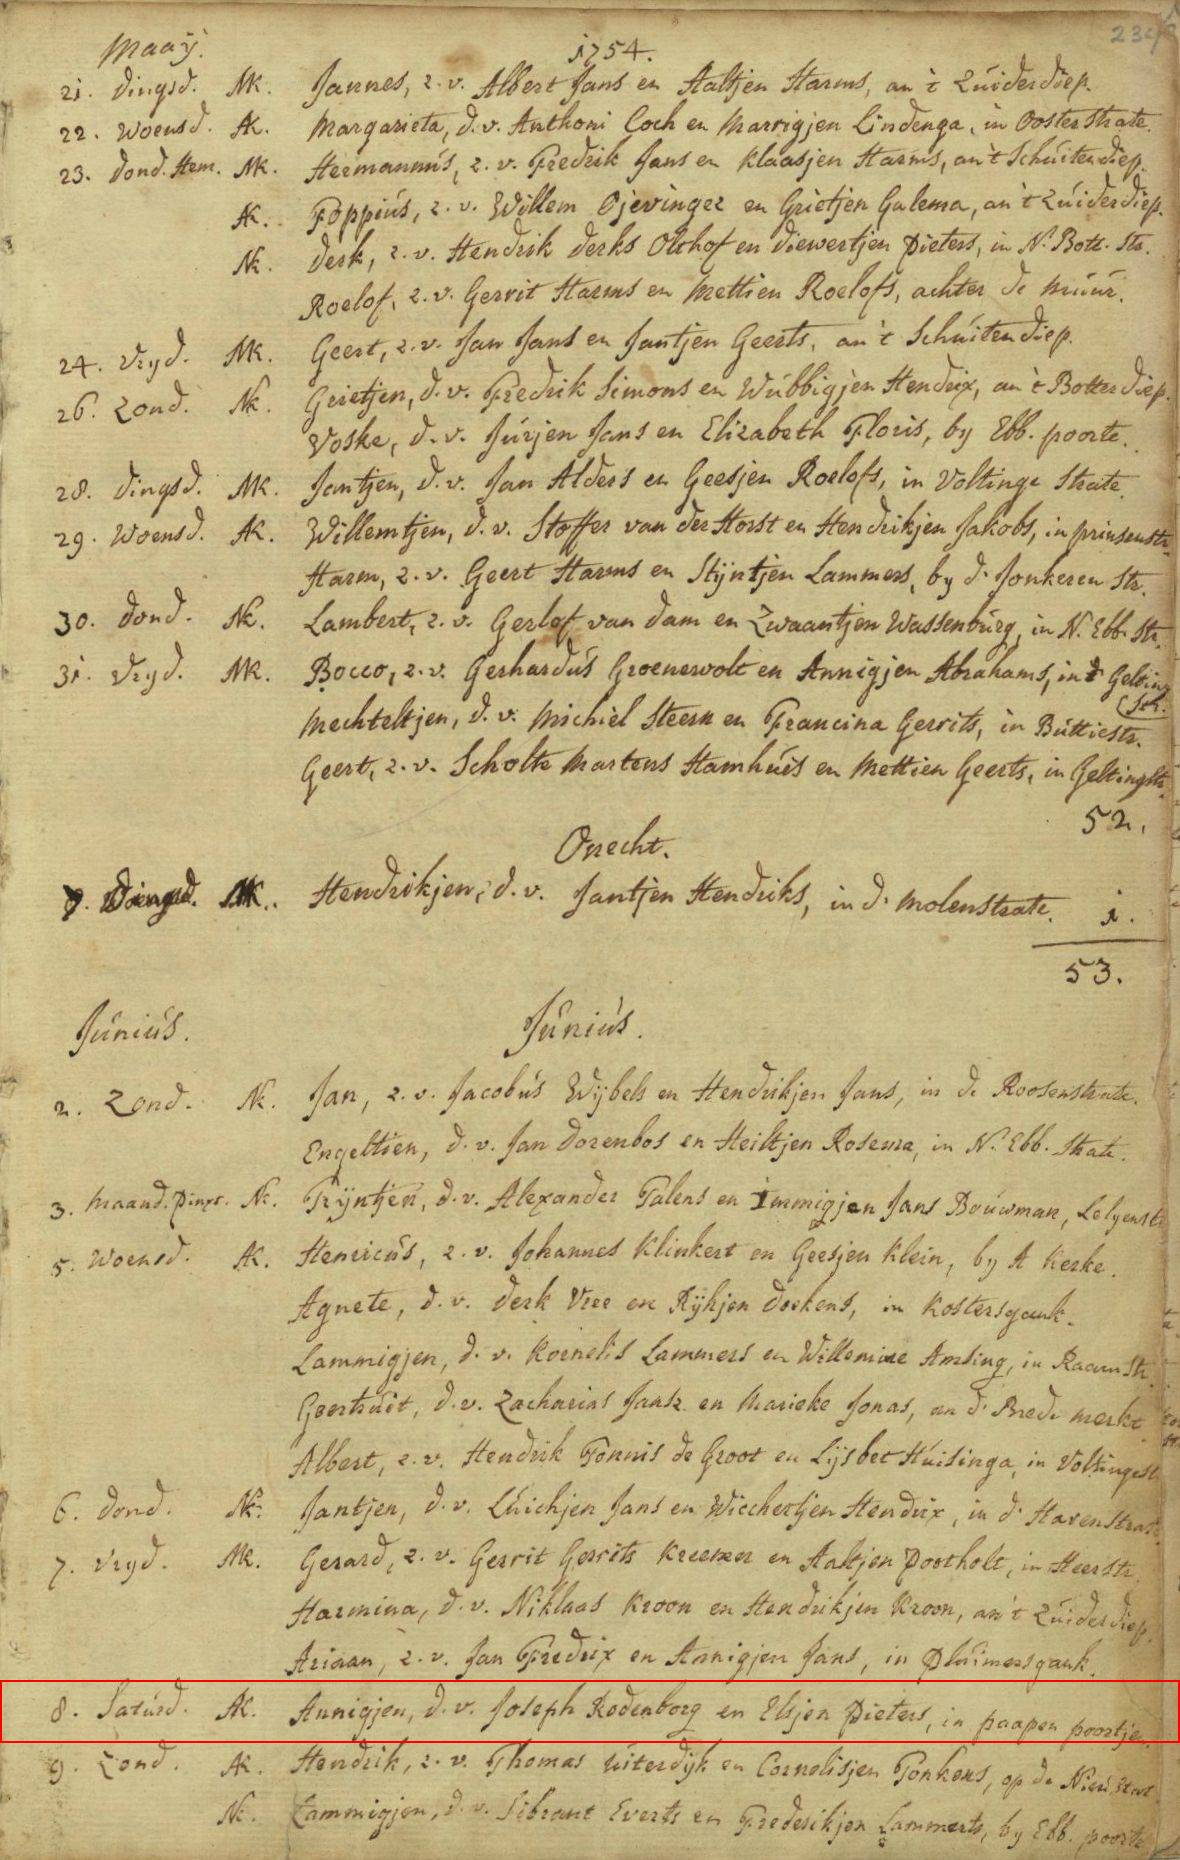 Maaÿ. 1754. 234
21. Dingsd. Mk. Jannes, z. v. Albert Jans en Aaltjen Harms, an 't Zúiderdiep.
22. Woensd. Ak. Margarieta, d. v. Anthoni Coch en Marrigjen Lindenga, in Oosterstrate.
23. Dond. Hem. Mk. Hermannús, z. v. Fredrik Jans en Klaasjen Harms, an 't Schúitendiep.
Ak. Foppiús, z. v. Willem Ojevinger en Grietjen Galema, an 't Zúiderdiep.
Nk. Derk, z. v. Hendrik Derks Olthof en Diewertjen Pieters, in N. Bott. Str.
Roelof, z. v. Gerrit Harms en Mettien Roelofs, achter de Múúr.
24. Vryd. Mk. Geert, z. v. Jan Jans en Jantjen Geerts, an 't Schúitendiep.
26. Zond. Nk. Grietjen, d. v. Fredrik Simons en Wúbbigjen Hendrix, an 't Botterdiep.
Voske, d. v. Júrjen Jans en Elizabeth Floris, by Ebb. poorte.
28. Dingsd. Mk. Jantjen, d. v. Jan Alders en Geesjen Roelofs, in Voltinge Strate.
29. Woensd. Ak. Willemtjen, d. v. Stoffer van der Horst en Hendrikjen Jakobs, in prinsenstr.
Harm, z. v. Geert Harms en Stÿntjen Lammers, by d' Jonkeren Str.
30. Dond. Nk. Lambert, z. v. Gerlof van Dam en Zwaantjen Wassenbúrg, in N. Ebb. Str.
31. Vryd. Mk. Bocco, z. v. Gerhardús Groenewolt en Annigjen Abrahams, in d' Gelking
Str.
Mechteltjen, d. v. Michiel Steern en Francina Gerrits, in Búttiestr.
Geert, z. v. Scholte Martens Hamhúis en Mettien Geerts, in Gelkingstr.
52.
Onecht.
Dingsd. Mk. Hendrikjen, d. v. Jantjen Hendriks, in d' Molenstrate. 1.
53.
Júniús. Júniús.
2. Zond. Nk. Jan, z. v. Jacobús Wÿbels en Hendrikjen Jans, in de Roosenstrate.
Engeltien, d. v. Jan Dorenbos en Heiltjen Rosema, in N. Ebb. Strate.
3. Maand. Pinxt. Nk. Trÿntjen, d. v. Alexander Talens en Immigjen Jans Boúwman, Lelyenstr.
5. Woensd. Ak. Henricús, z. v. Johannes Klinkert en Geesjen Klein, by A Kerke.
Agnete, d. v. Derk Vree en Rÿkjen Doekens, in Kostersgank.
Lammigjen, d. v. Kornelis Lammers en Willemine Amsing, in Raamstr.
Geertrúit, d. v. Zacharias Jansz en Marieke Jonas, an d' Brede merkt.
Albert, z. v. Hendrik Tonnis de Groot en Lÿsbet Húisinga, in Voltingestr.
6. Dond. Nk. Jantjen, d. v. Lúichjen Jans en Wicchertjen Hendrix, in d' Havenstrate.
7. Vryd. Mk. Gerard, z. v. Gerrit Gerrits Kreemer en Aaltjen Pootholt, in Heerstr.
Harmina, d. v. Niklaas Kroon en Hendrikjen Kroon, an 't Zúiderdiep.
Ariaan, z. v. Jan Fredrix en Annigjen Jans, in Plúimersgank.
8. Satúrd. Ak. Annigjen, d. v. Joseph Rodenborg en Elsjen Pieters, in paapen poortjen.
9. Zond. Ak. Hendrik, z. v. Thomas Úiterdÿk en Cornelisjen Tonkens, op de Nieú Stat
Nk. Lammigjen, d. v. Sibrant Everts en Frederikjen Lammerts, by Ebb. poorte.